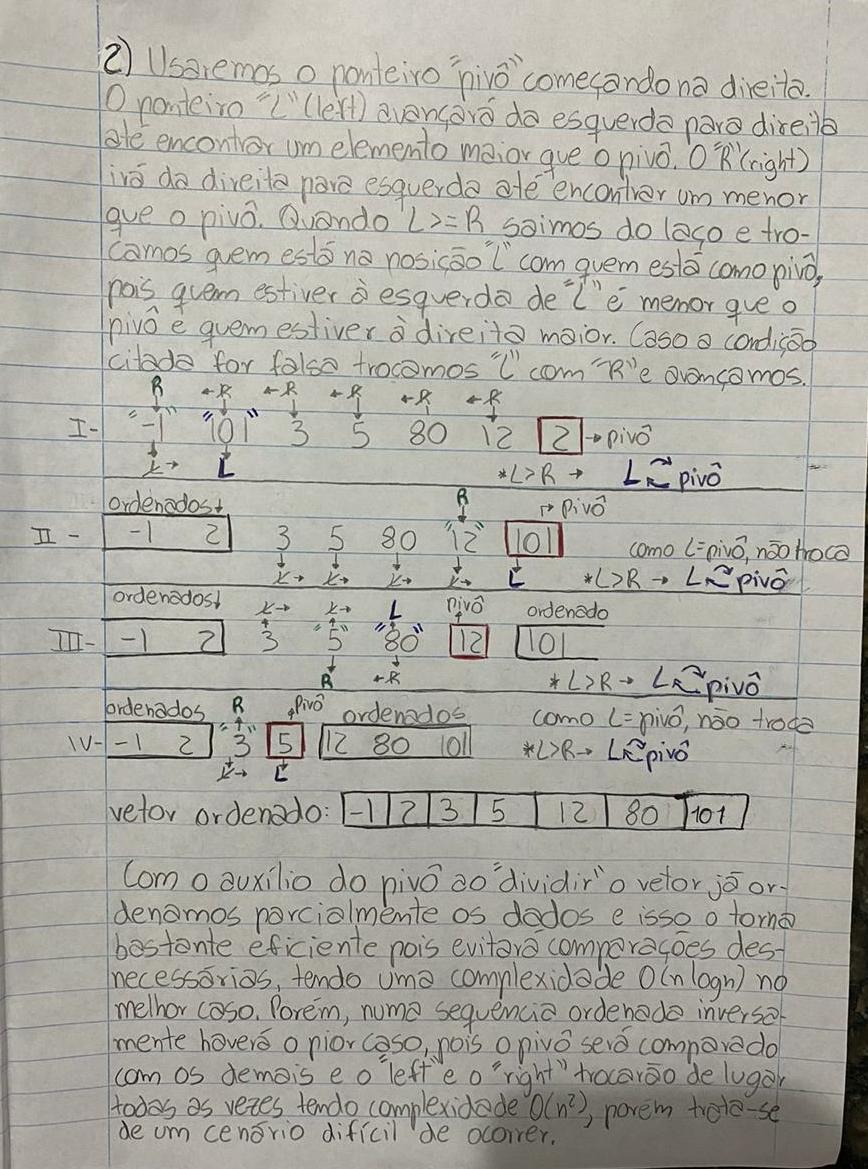 2) Usaremos o ponteiro "pivô" começando na direita.
O ponteiro "L" (left) avançará da esquerda para direita
até encontrar um elemento maior que o pivô. O "R" (right)
irá da direita para esquerda até encontrar um menor
que o pivô. Quando L>=R saimos do laço e tro-
camos quem está na posição "L" com quem está como pivô,
pois quem estiver à esquerda de "L" é menor que o
pivô e quem estiver à direita maior. Caso a condição
citada for falsa trocamos "L" com "R" e avançamos.
R ←R ←R ←R ←R ←R
I- "-1" "101" 3 5 80 12 2 → pivô
L→ L *L>R → L pivô
ordenados↓ R ↱ pivô
II - -1 2 3 5 80 "12" 101 como L=pivô, não troca
L→ L→ L→ L→ L *L>R → L pivô
ordenados↓ L→ L→ L pivô ordenado
III- -1 2 3 "5" "80" 12 101
R ←R *L>R → L pivô
ordenados R pivô ordenados como L=pivô, não troca
IV- -1 2 "3" 5 12 80 101 *L>R → L pivô
L→ L
vetor ordenado: -1 2 3 5 12 80 101
Com o auxílio do pivô ao "dividir" o vetor já or-
denamos parcialmente os dados e isso o torna
bastante eficiente pois evitará comparações des-
necessárias, tendo uma complexidade O(n logn) no
melhor caso. Porém, numa sequência ordenada inversa-
mente haverá o pior caso, pois o pivô será comparado
com os demais e o "left" e o "right" trocarão de lugar
todas as vezes tendo complexidade O(n²), porém trata-se
de um cenário difícil de ocorrer.